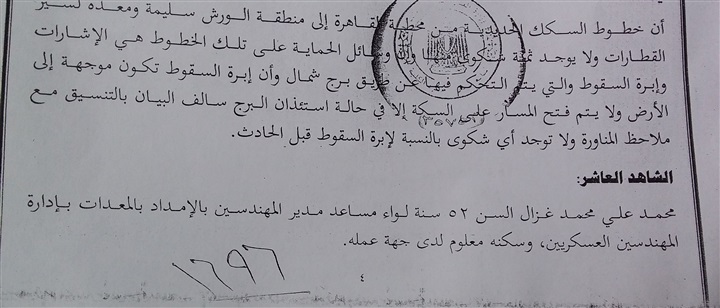 أن خطوط السكك الحديدية من محطة القاهرة إلى منطقة الورش سليمة ومعدة لسير
القطارات ولا يوجد ثمة شكوى وسائل الحماية على تلك الخطوط هي الإشارات
وإبرة السقوط والتي يتم التحكم فيها عن طريق برج شمال وأن إبرة السقوط تكون موجهة إلى
الأرض ولا يتم فتح المسار على السكة إلا في حالة استئذان البرج سالف البيان بالتنسيق مع
ملاحظ المناورة ولا توجد أي شكوى بالنسبة لإبرة السقوط قبل الحادث.
الشاهد العاشر:
محمد علي محمد غزال السن ٥٢ سنة لواء مساعد مدير المهندسين بالإمداد بالمعدات بإدارة
المهندسين العسكريين، وسكنه معلوم لدى جهة عمله.
٤
١٦٩٦